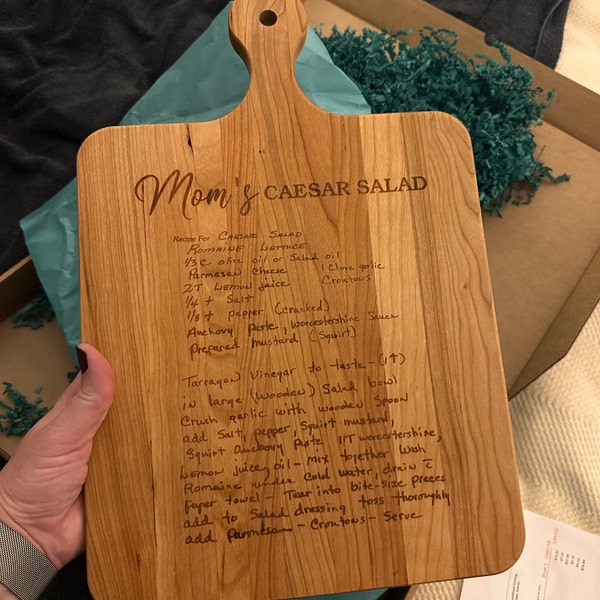 Mom's CAESAR SALAD
Recipe For CAESAR SALAD
ROMAINE LETTUCE
1/3 C olive oil or Salad oil
Parmesan Cheese 1 Clove garlic
2T Lemon juice Croutons
1/4 t Salt
1/8 t pepper (cracked)
Anchovy Paste, Worcestershire Sauce
Prepared mustard (Squirt)
Tarragon Vinegar to taste - (1T)
in large (wooden) Salad bowl
Crush garlic with wooden Spoon
add Salt, pepper, Squirt mustard,
Squirt Anchovy Paste 1T worcestershire,
Lemon juice, oil - mix together Wash
Romaine under Cold water, drain c̄
Paper towel - Tear into bite-size pieces
add to Salad dressing toss thoroughly
add Parmesan - Croutons - Serve